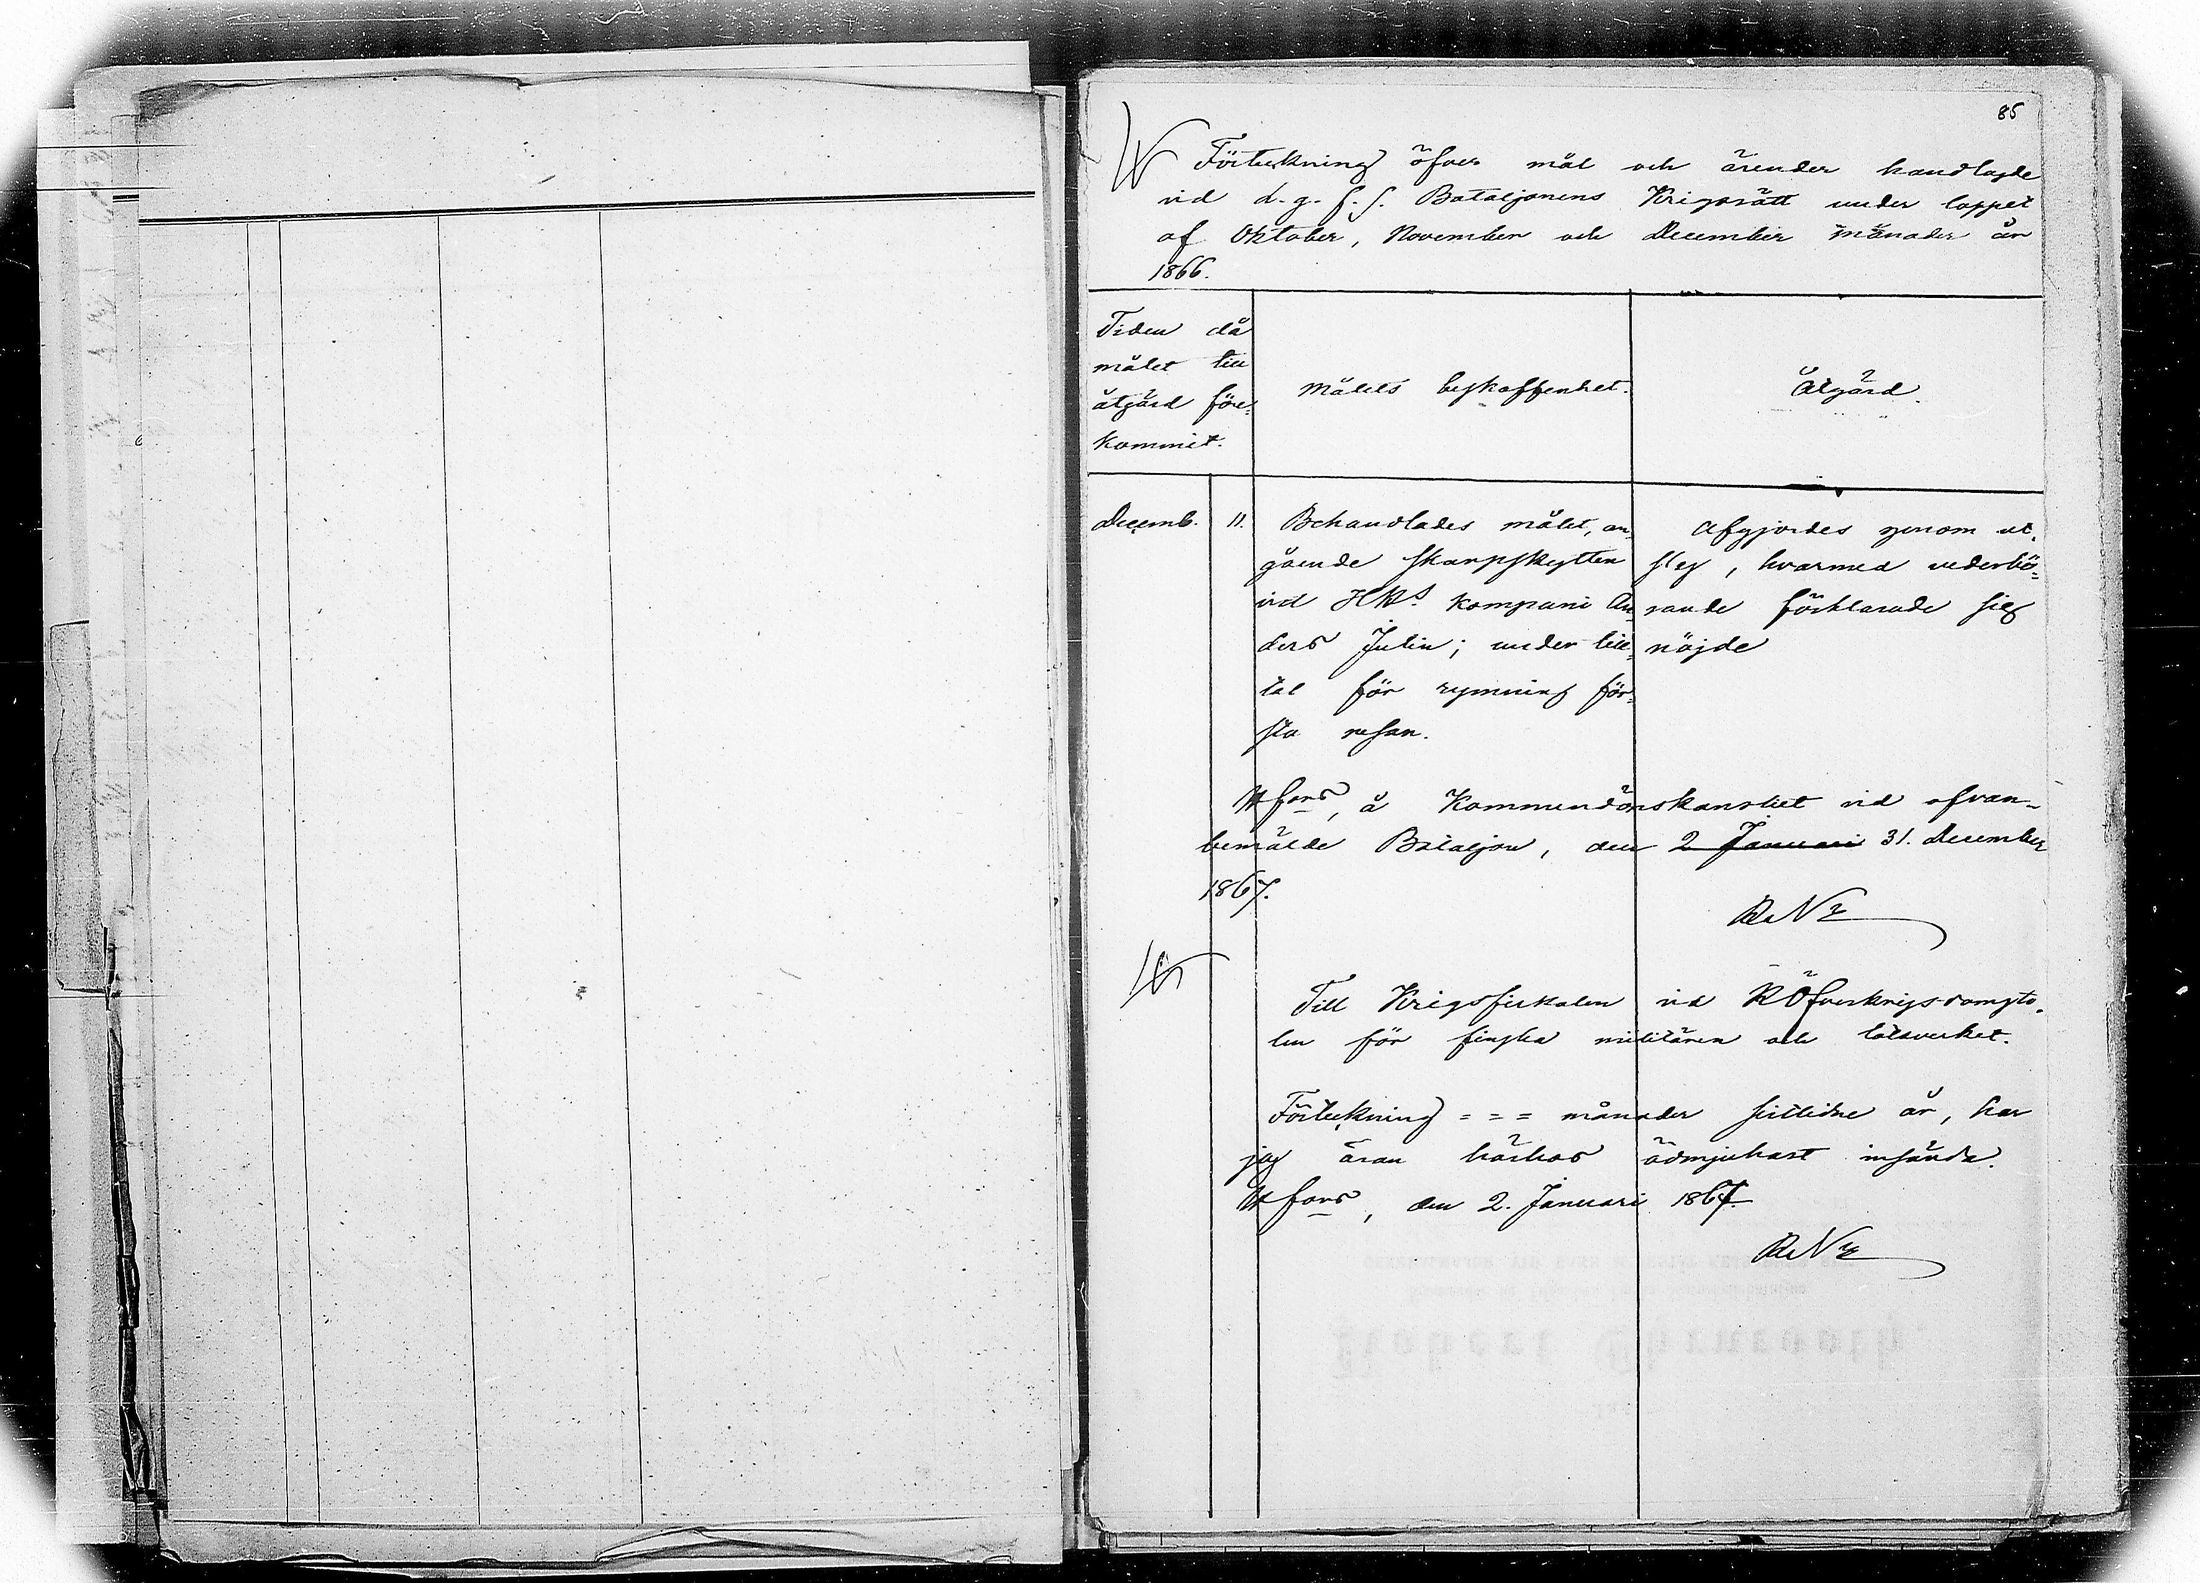 85
Förteckning öfver mål och ärender handlagde
vid d. g. f. s. Bataljonens Krigsrätt under loppet
af Oktober, November och December månader år
1866.
Tiden då
målet till
åtgärd före-
kommit.
Målets beskaffenhet.
Åtgärd.
Decemb. 11.
Behandlades målet, an-
gående skarpskytten
vid HKs. kompani An-
ders Julin; under till-
tal för rymning för-
sta resan.
Afgjordes genom ut-
slag, hvarmed vederbö-
rande förklarade sig
nöjde
Hfors, å Kommendörskansliet vid ofvan-
bemälde Bataljon, den 2 Januari 31. December
1867.
Till Krigsfiskalen vid KÖfverkrigsdomsto-
len för finska militären och lotsverket.
Förteckning = = = månader sistlidne år, har
jag äran härhos ödmjukast insända.
Hfors, den 2. Januari 1867.